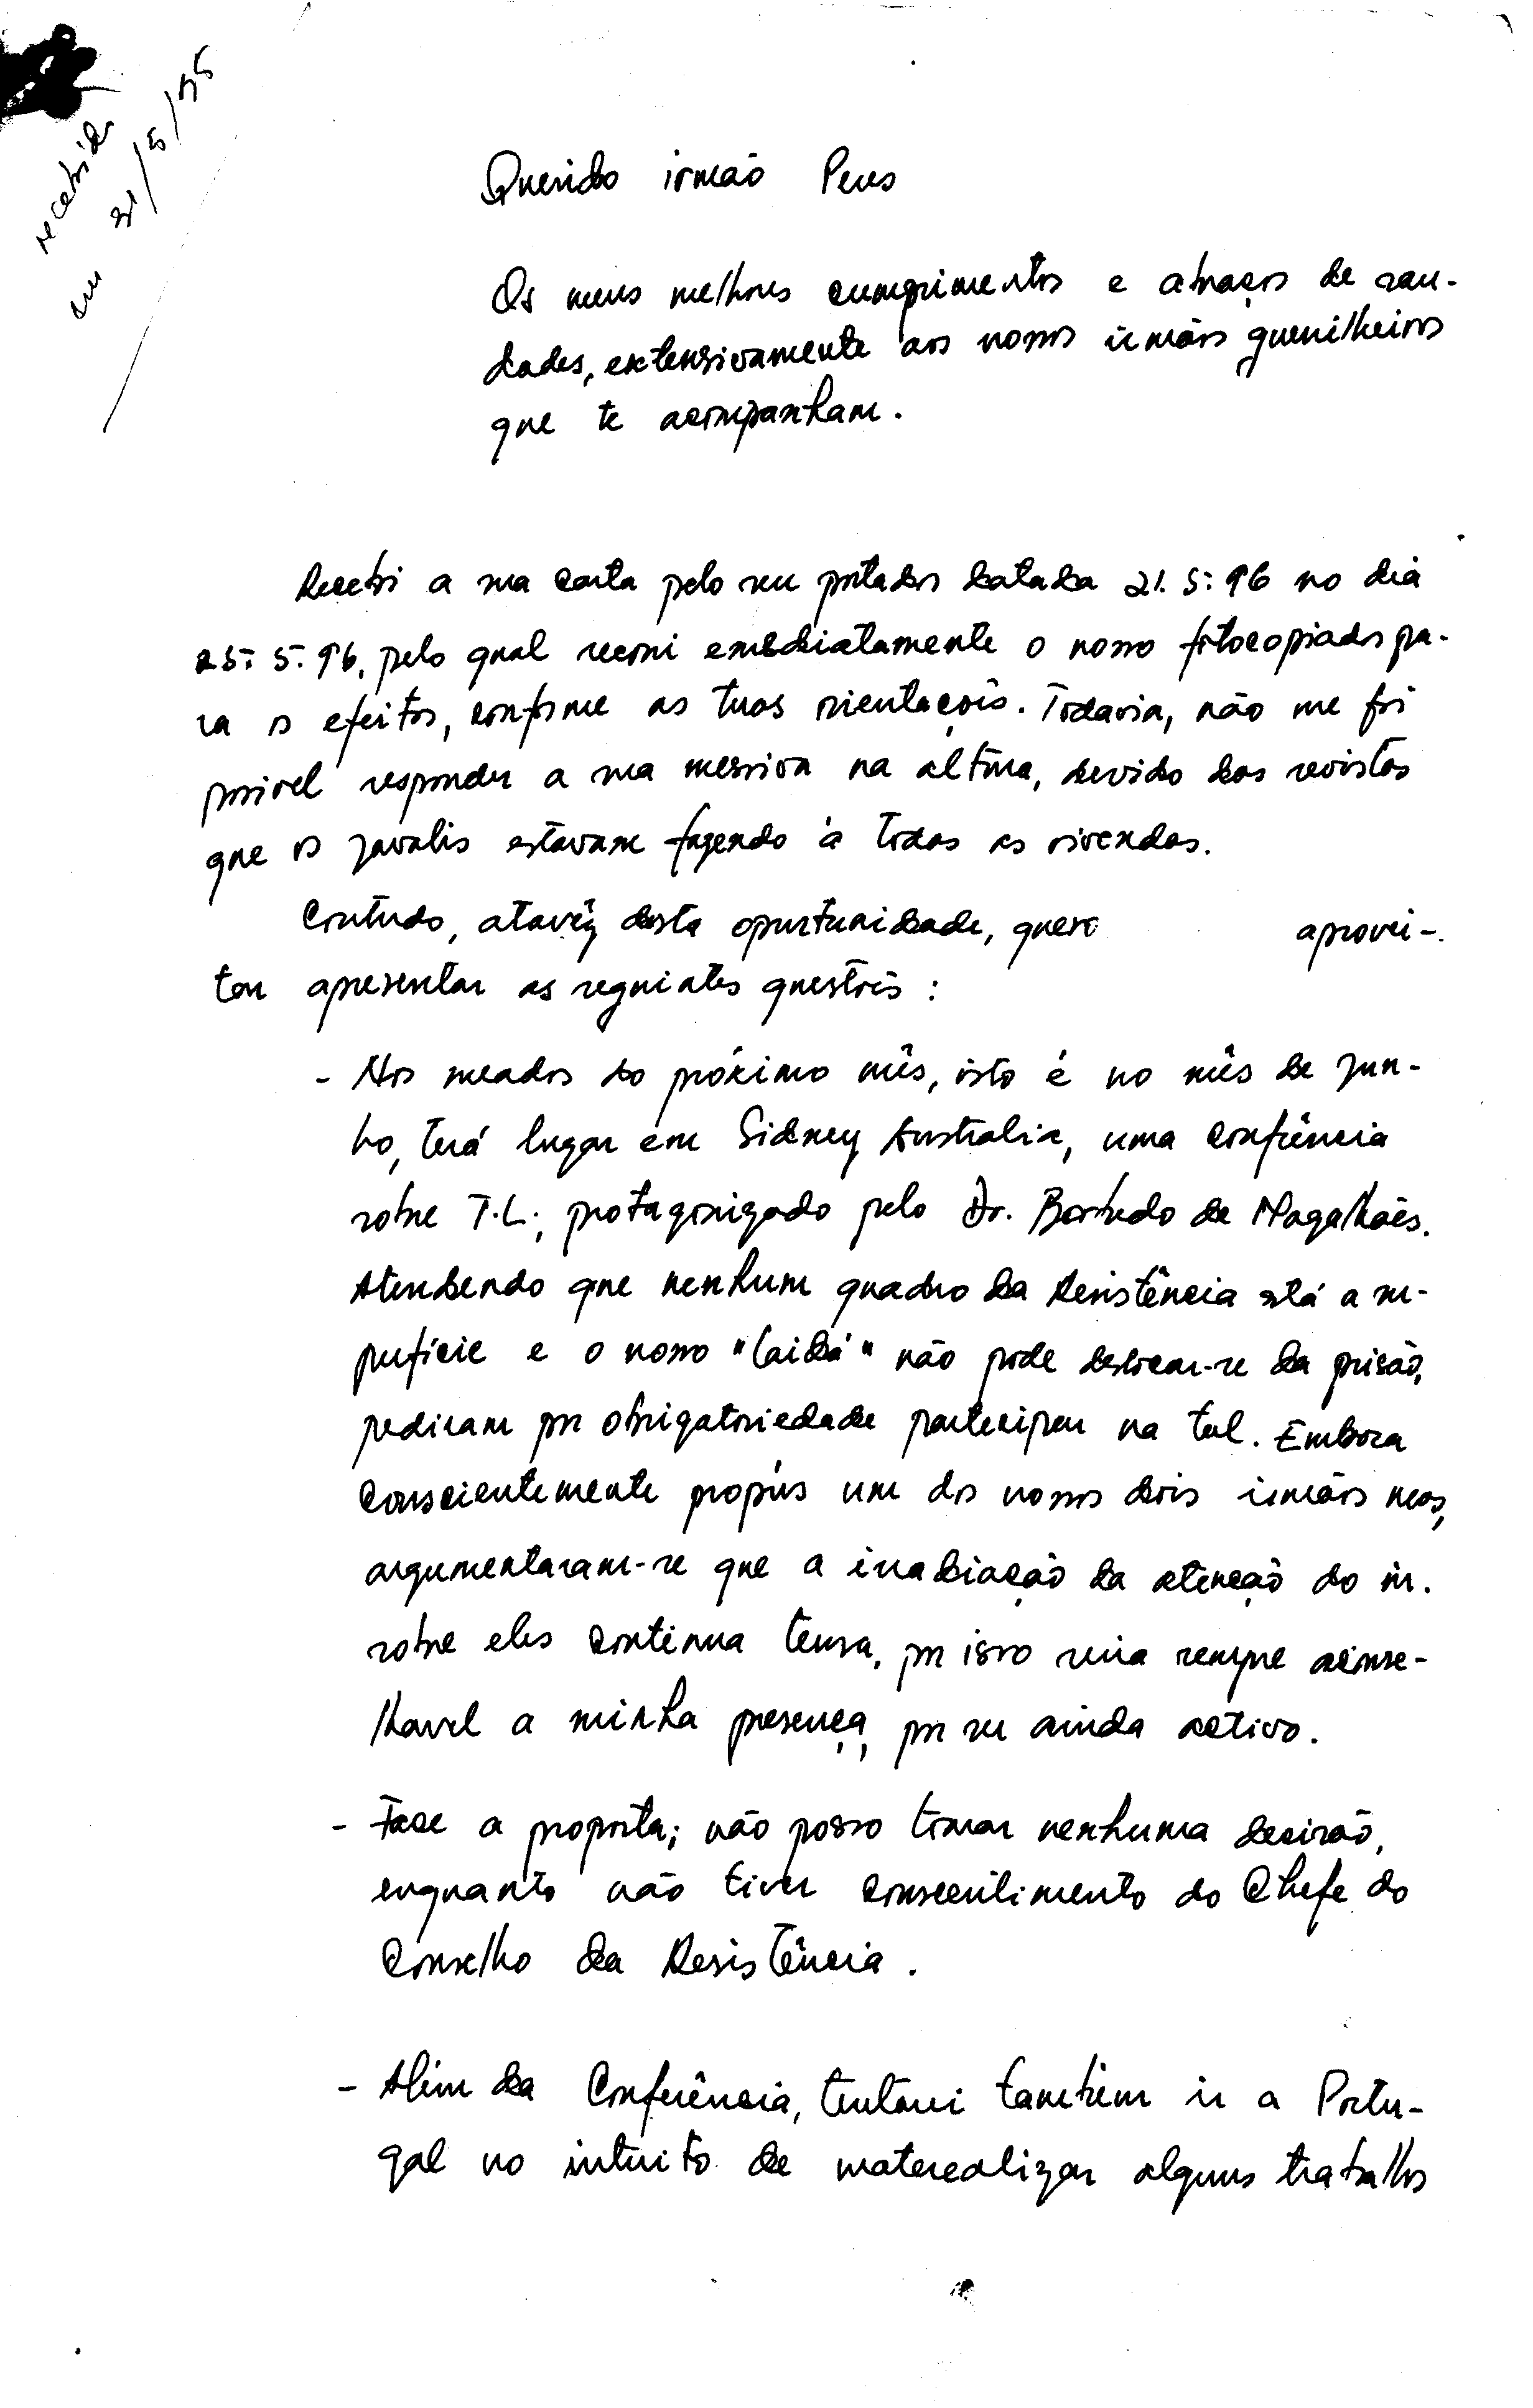 recebida
em 31/5/96
Querido irmão Peus
Os meus melhores cumprimentos e abraços de sau-
dades, extensivamente aos nossos irmãos guerrilheiros
que te acompanham.
Recebi a sua carta pelo seu portador datada 21.5.96 no dia
25.5.96, pelo qual accni emediatamente o nosso fotocopiador pa-
ra os efeitos, conforme as tuas orientações. Todavia, não me foi
possivel responder a sua messiva na altura, devido das revistas
que os javalis estavam fazendo à todas as vivendas.
Contudo, atavéz desta oportunidade, quero aprovei-
tar apresentar as seguiates questões :
- Nos meados do próximo mês, isto é no mês de Jun-
ho, terá lugar em Sidney Australia, uma confrência
sobre T.L., protagonizado pelo Dr. Barbedo de Magalhães.
Atendendo que nenhum quadro da Resistência está a su-
perfície e o nosso "Laidá" não pode deslocar-se da prisão,
pediram por obrigatoriedade partecipar na tal. Embora
conscientemente propûs um dos nossos dois irmãos
argumentaram-se que a irradiação da atenção do in.
sobre eles continua tensa, por isso seria sempre aconse-
lhavel a minha presença, por ser ainda activo.
- Face a proposta; não posso tomar nenhuma decisão,
enquanto não tiver consentimento do Chefe do
Conselho da Resistência.
- Além da Conferência, tentarei também ir a Portu-
gal no intuito de materealizar alguns trabalhos